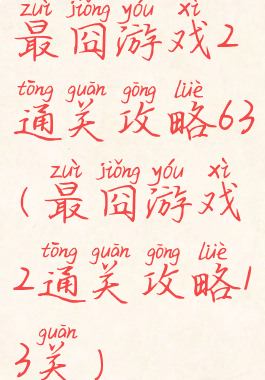 zuì jiǒng yóu xì
最囧游戏2
tōng guān gōng lüè
通关攻略63
zuì jiǒng yóu xì
(最囧游戏
tōng guān gōng lüè
2通关攻略1
guān
3关)